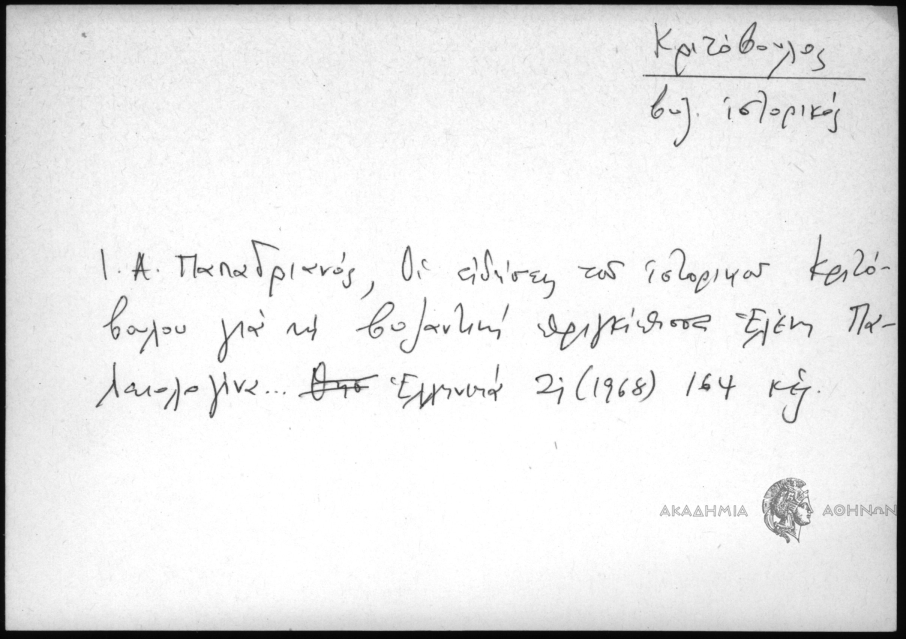 Κριτόβουλος
βυζ. ἱστορικός
Ι. Α. Παπαδριανός, Οἱ εἰδήσεις τοῦ ἱστορικοῦ Κριτό-
βουλου γιὰ τὴ βυζαντινὴ πριγκίπισσα Ἑλένη Πα-
λαιολογίνα... Ἑλληνικά 21 (1968) 164 κἑξ.
ΑΚΑΔΗΜΙΑ ΑΘΗΝΩΝ